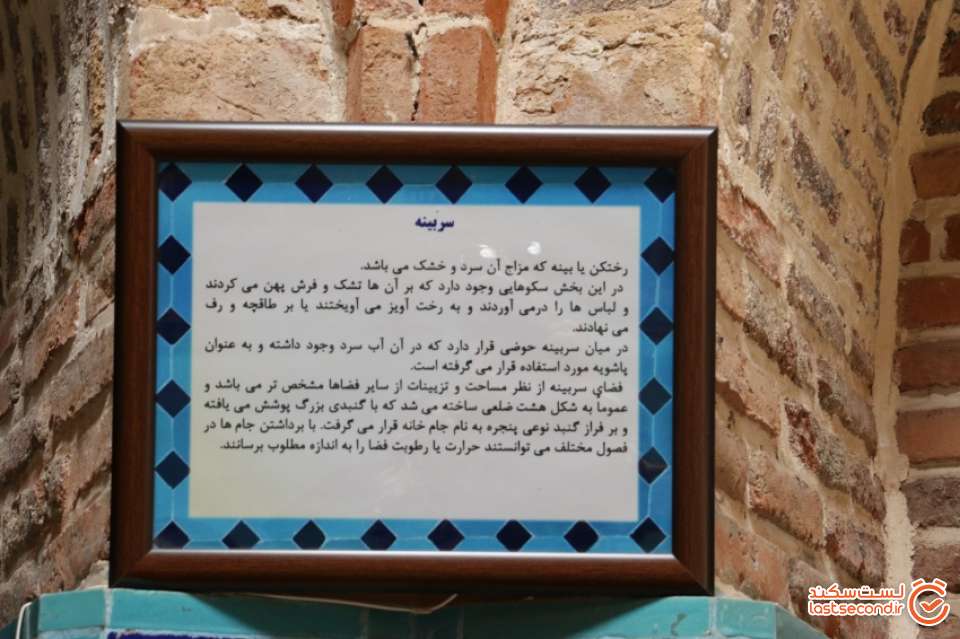 سربینه
رختکن یا بینه که مزاج آن سرد و خشک می باشد.
در این بخش سکوهایی وجود دارد که بر آن ها تشک و فرش پهن می کردند
و لباس ها را درمی آوردند و به رخت آویز می آویختند یا بر طاقچه و رف
می نهادند.
در میان سربینه حوضی قرار دارد که در آن آب سرد وجود داشته و به عنوان
پاشویه مورد استفاده قرار می گرفته است.
فضای سربینه از نظر مساحت و تزیینات از سایر فضاها مشخص تر می باشد و
عموماً به شکل هشت ضلعی ساخته می شد که با گنبدی بزرگ پوشش می یافته
و بر فراز گنبد نوعی پنجره به نام جام خانه قرار می گرفت. با برداشتن جام ها در
فصول مختلف می توانستند حرارت یا رطوبت فضا را به اندازه مطلوب برسانند.
لست‌سکند
lastsecond.ir